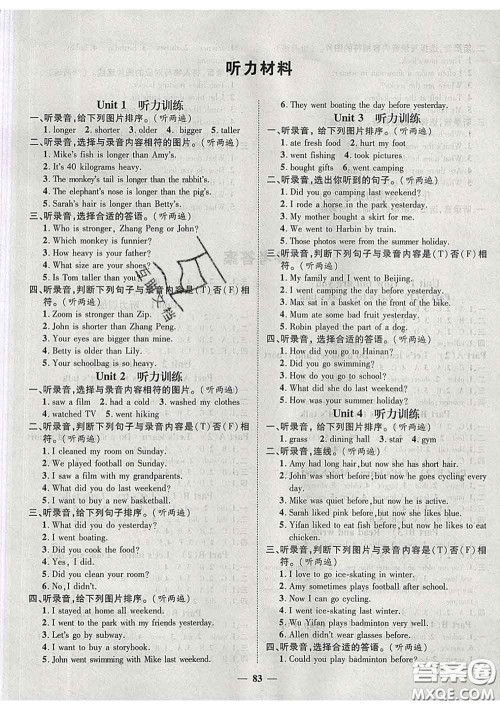 听力材料
Unit 1 听力训练
一、听录音,给下列图片排序。(听两遍)
1. longer 2. shorter 3. older 4. bigger 5. taller
二、听录音,选择与录音内容相符的图片。(听两遍)
1. Mike's fish is longer than Amy's.
2. It's 40 kilograms heavy.
3. The monkey's tail is longer than the rabbit's.
4. The elephant's nose is longer than the pig's.
5. Sarah's hair is longer than Betty's.
三、听录音,选择合适的答语。(听两遍)
1. Who is stronger, Zhang Peng or John?
2. Which monkey is funnier?
3. How heavy are you?
4. What size are your shoes?
5. Is Tom taller than you?
四、听录音,判断下列句子与录音内容是(T)否(F)相
符。(听两遍)
1. Zoom is stronger than Zip.
2. John is shorter than Zhang Peng.
3. Your eyes are bigger than mine.
4. Betty is older than Lily.
5. Your schoolbag is so heavy.
Unit 2 听力训练
一、听录音,选择与录音内容相符的图片。(听两遍)
1. saw a film 2. had a cold 3. washed my clothes
4. watched TV 5. went hiking
二、听录音,判断下列句子与录音内容是(T)否(F)相
符。(听两遍)
1. I cleaned my room on Sunday.
2. We played football on Sunday.
3. I saw a film with my grandparents.
4. What did you do last weekend?
5. I want to buy a new basketball.
三、听录音,给下列句子排序。(听两遍)
1. What did you do yesterday?
2. I went boating.
3. Did you cook the food?
4. Yes, I did.
5. Did you clean your room?
6. No, I didn't.
四、听录音,给下列图片排序。(听两遍)
1. I stayed at home all weekend.
2. I went to the park with my friends yesterday.
3. Let's go by subway.
4. I want to buy a book.
5. John went swimming with Mike last weekend.
6. They went boating the day before yesterday.
Unit 3 听力训练
一、听录音,给下列图片排序。(听两遍)
1. ate fresh food 2. hurt my foot
3. went fishing 4. took pictures
5. bought gifts 6. went camping
二、听录音,选出你听到的句子。(听两遍)
1. Did you go camping last weekend?
2. I rode a horse in the park.
3. My mother bought a skirt for me.
4. How did you go there?
5. Those photos were from the summer holiday.
三、听录音,判断下列图片与录音内容是(T)否(F)相
符。(听两遍)
1. My family and I went to Beijing.
2. I went camping the day before yesterday.
3. Max sat in a basket on the front of the bike.
4. Mum ate some bad fruit yesterday.
5. Robin played the part of a dog.
四、听录音,选择合适的答语。(听两遍)
1. How did you go to Hainan?
2. Did you go to school yesterday?
3. What did you do last night?
4. Where did you go yesterday?
5. How was your summer holiday?
Unit 4 听力训练
一、听录音,给下列图片排序。(听两遍)
1. grass 2. dining hall 3. star 4. gym
二、听录音,连线。(听两遍)
1. Amy had long hair, but now she has short hair.
2. John didn't like cycling, but now he goes cycling every
day.
3. Mike was quiet before, but now he is very active.
4. Sarah liked pink before, but now she likes blue.
5. Yifan liked to eat fish before, but now he likes to eat
chicken.
三、听录音,判断下列图片与录音内容是(T)否(F)相
符。(听两遍)
1. I love to go ice-skating in winter.
2. Amy sometimes plays football after school.
3. Now I go cycling.
4. I went ice-skating last winter.
5. Wu Yifan plays badminton very well.
6. Allen didn't wear glasses before.
四、听录音,选择合适的答语。(听两遍)
1. Could you play badminton before?
83
答案圈
MXQE.COM